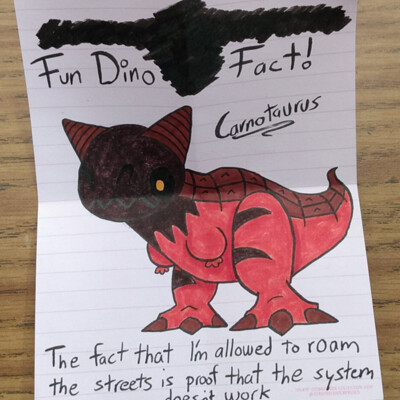 Fun Dino Fact!
Carnotaurus
The fact that I'm allowed to roam
the streets is proof that the system
doesn't work